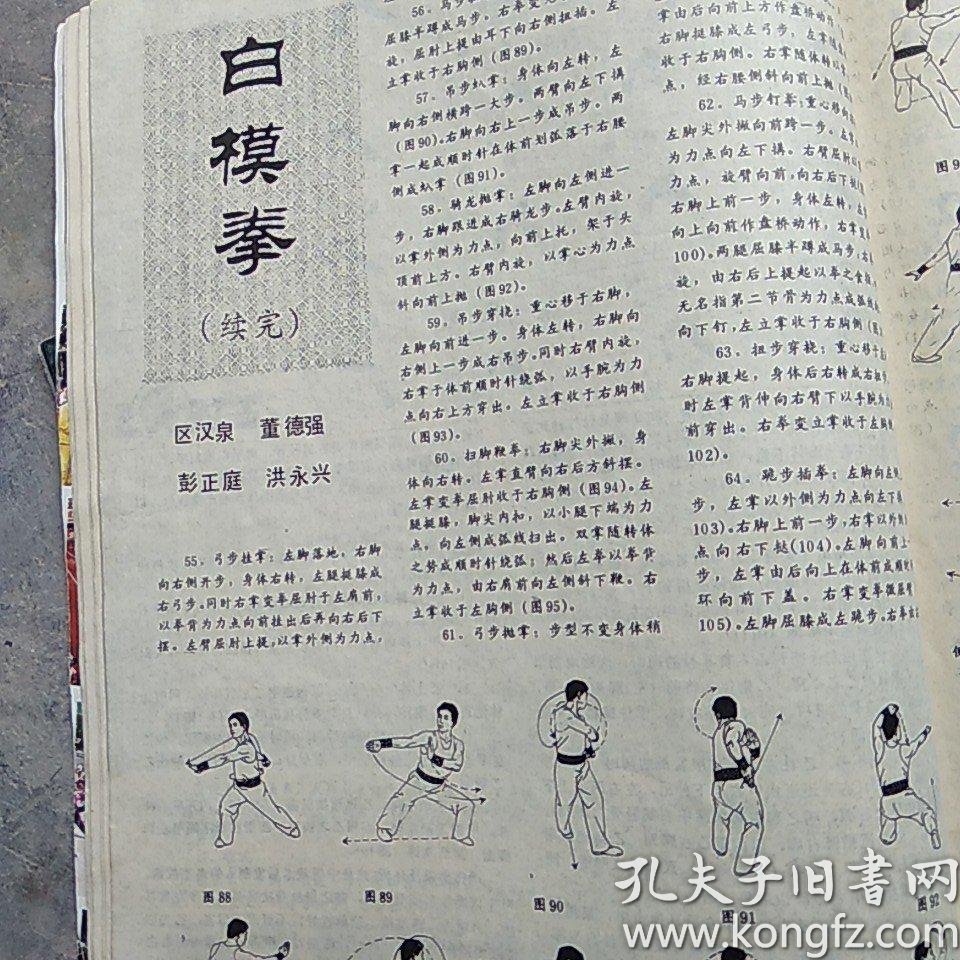 白模拳
(续完)
区汉泉 董德强
彭正庭 洪永兴
55．弓步挂掌：左脚落地，右脚
向右侧开步，身体右转，左腿挺膝成
右弓步。同时右掌变拳屈肘于左肩前，
以拳背为力点向前挂出后再向右后下
摆。左臂屈肘上提，以掌外侧为力点，
56．马步
屈膝半蹲成马步。右拳变
旋，屈肘上提由耳下向右侧扭插。左
立掌收于右胸侧（图89）。
57．吊步虬掌：身体向左转，左
脚向右侧横跨一大步。两臂向左下搆
（图90）。右脚向右上一步成吊步。两
掌一起成顺时针在体前划弧落于右腰
侧成虬掌（图91）。
58．骑龙抛掌：左脚向左侧进一
步，右脚跟进成右骑龙步。左臂内旋，
以掌外侧为力点，向前上托，架于头
顶前上方。右臂内旋，以掌心为力点
斜向前上抛（图92）。
59．吊步穿挠：重心移于右脚，
左脚向前进一步。身体左转，右脚向
右侧上一步成右吊步。同时右臂内旋，
右掌于体前顺时针绕弧，以手腕为力
点向右上方穿出。左立掌收于右胸侧
（图93）。
60．扫脚鞭拳：右脚尖外撇，身
体向右转。左掌直臂向右后方斜摆。
左掌变拳屈肘收于右胸侧（图94）。左
腿挺膝，脚尖内扣，以小腿下端为力
点，向左侧成弧线扫出。双掌随转体
之势成顺时针绕弧；然后左拳以拳背
为力点，由右肩前向左侧斜下鞭。右
立掌收于左胸侧（图95）。
61．弓步抛掌：步型不变身体稍
掌由后向前上方作盘桥动作，
右脚挺膝成左弓步，左掌随
收于右胸侧。右掌随体转以掌
点，经右腰侧斜向前上抛（
62．马步钉拳：重心移
左脚尖外撇向前跨一步。左掌
为力点向左下搆。右臂屈肘
力点，旋臂向前，向右后下挞
右脚上前一步，身体左转，左
向上向前作盘桥动作，右掌变
100）。两腿屈膝半蹲成马步；右
旋，由右后上提起以拳之食指
无名指第二节骨为力点成弧线
向下钉，左立掌收于右胸侧（
63．扭步穿挠：重心移于
右脚提起，身体后右转成右扭
时左掌背伸向右臂下以手腕为
前穿出。右拳变立掌收于左胸
102）。
64．跪步插拳：左脚向左
步，左掌以外侧为力点向左下
103）。右脚上前一步，右掌以外侧
点向右下挞（104）。左脚向前上
步，左掌由后向上在体前成顺时
环向前下盖。右掌变拳微屈臂
105）。左脚屈膝成左跪步。右拳
图88
图89
图90
图91
图92
孔夫子旧书网
www.kongfz.com